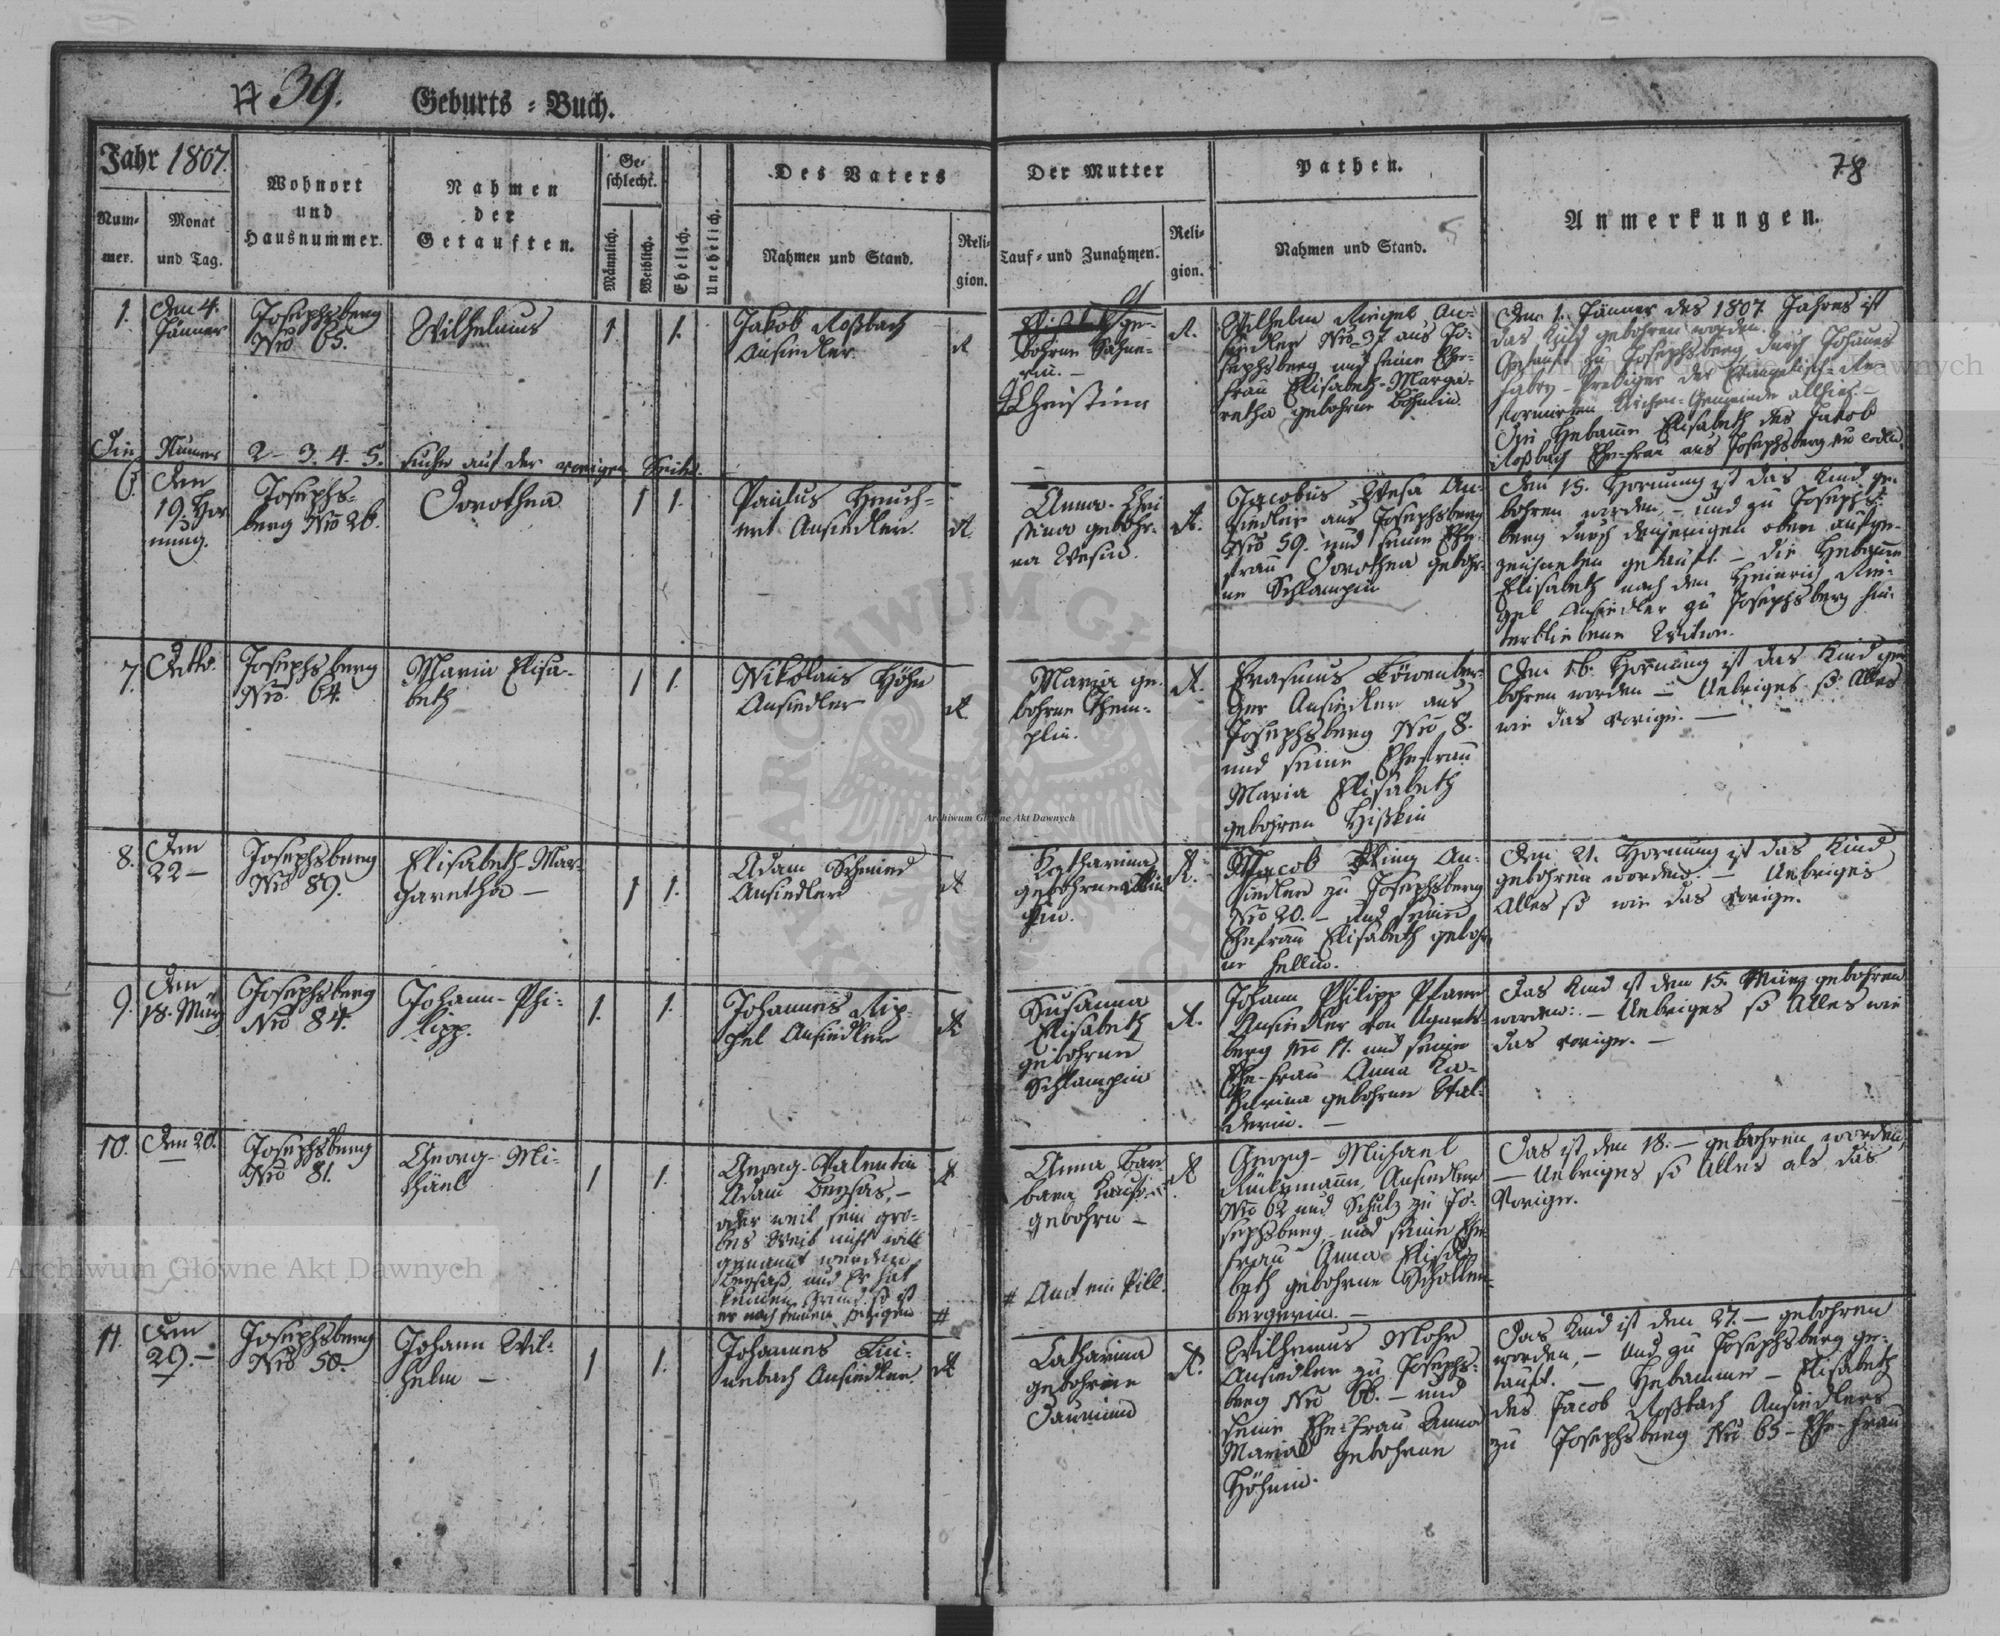 # 39.
Geburts-Buch.
78
Jahr 1807.
Num-
mer.
Monat
und Tag.
Wohnort
und
Hausnummer.
Nahmen
der
Getauften.
Ge-
schlecht.
Männlich.
Weiblich.
Ehelich.
Unehelich.
Des Vaters
Nahmen und Stand.
Reli-
gion.
Der Mutter
Tauf- und Zunahmen.
Reli-
gion.
Pathen.
Nahmen und Stand.
Anmerkungen.
1.
Den 4.
Jänner
Josephsberg
Nro 65.
Wilhelmus
1.
1.
Jakob Roßbach
Ansiedler.
R
ge-
bohrne
rin. –
Christina
R.
Wilhelm Riegel An-
siedler Nro 37 aus Jo-
sephsberg und seine Ehe-
frau Elisabeth-Marga-
retha gebohrne
Den 1. Jänner des 1807. Jahres ist
das Kind gebohren worden.
Getauft zu Josephsberg durch Johannes
Fabry – Prediger der Evangelisch-Re-
formirten Kirchen-Gemeinde allhier. –
Die Hebamme Elisabeth des Jakob
Roßbach Ehe-frau aus Josephsberg
Die Numer 2- 3. 4. 5. suche auf der vorigen Seite.
6.
Den
19. Hor-
nung.
Josephs-
berg Nro 26.
Dorothea
1
1.
Paulus Heuch-
ert Ansiedler.
R.
Anna-Chri
stina gebohr-
ne Wesin.
R.
Jacobus Wesa An-
siedler aus Josephsberg
Nro 59. und seine Ehe-
frau Dorothea gebohr-
ne Schlampin
Den 15. Hornung ist das Kind ge-
bohren worden, – und zu Josephs-
berg durch denjenigen oben aufge-
zeichneten getauft – die Hebamme
Elisabeth nach dem Heinrich Rie-
gel Ansiedler zu Josephsberg hin-
terbliebene Witwe.
7.
Detto.
Josephsberg
Nro. 64.
Maria Elisa-
beth
1
1.
Nikolaus Höhn
Ansiedler
R.
Maria ge-
bohrne
plin.
R.
Erasmus Löwenber-
ger Ansiedler aus
Josephsberg Nro 8.
und seine Ehefrau
Maria Elisabeth
gebohren
Den 16. Hornung ist das Kind ge-
bohren worden – Uebriges so Alles
wie das vorige. –
8.
Den
22 –
Josephsberg
Nro 89.
Elisabeth-Mar-
garetha –
1
1.
Adam Schmied
Ansiedler
R
Katharina
gebohrne
R.
Jacob An-
siedler zu Josephsberg
Nro 20. – und seine
Ehefrau Elisabeth gebohr-
ne
Den 21. Hornung ist das Kind
gebohren worden. – Uebriges
Alles so wie das vorige.
9.
Den
18. März
Josephsberg
Nro 84.
Johann-Phi-
lipp.
1.
1.
Johannes Rip-
pel Ansiedler
R
Susanna
Elisabeth
gebohrne
Schlampin
R.
Johann Philipp Pfarr
Ansiedler von Ugarts-
berg Nro 11. und seine
Ehe-frau Anna Ka-
tharina gebohrne Stal-
derin. –
Das Kind ist den 15. März gebohren
worden. – Uebriges so Alles wie
das vorige. –
10.
Den 20.
Josephsberg
Nro 81.
Georg-Mi-
chäel
1
1.
Georg-Valentin
Adam Beysas, –
oder weil sein gro-
bes Weib nicht will
genannt werden
Beysaß und Er hat
keinen Grund so ist
er nach seinem jezigen #
R
Anna Bar-
bara
gebohrn –
# Amt ein Pill.
R
Georg-Michael
Ansiedler
Nro 62 und Schulz zu Jo-
sephsberg und seine Ehe-
frau Anna Elisa-
beth gebohrne Schollen-
bergerin. –
Das ist den 18. – gebohren worden,
– Uebriges so Alles als das
Vorige.
11.
Den
29. –
Josephsberg
Nro 50.
Johann Wil-
helm –
1
1.
Johannes Lei-
nebach Ansiedler.
R
Catharina
gebohrne
R.
Wilhemus Mohr
Ansiedler zu Josephs-
berg Nro 66. – und
seine Ehe-frau Anna
Maria gebohrne
Höhnin.
Das Kind ist den 27. – gebohren
worden, – und zu Josephsberg ge-
tauft. – Hebamme – Elisabeth
des Jacob Roßbach Ansiedlers
zu Josephsberg Nro 65 – Ehe-frau
Archiwum Główne Akt Dawnych
Archiwum Główne Akt Dawnych
Archiwum Główne Akt Dawnych